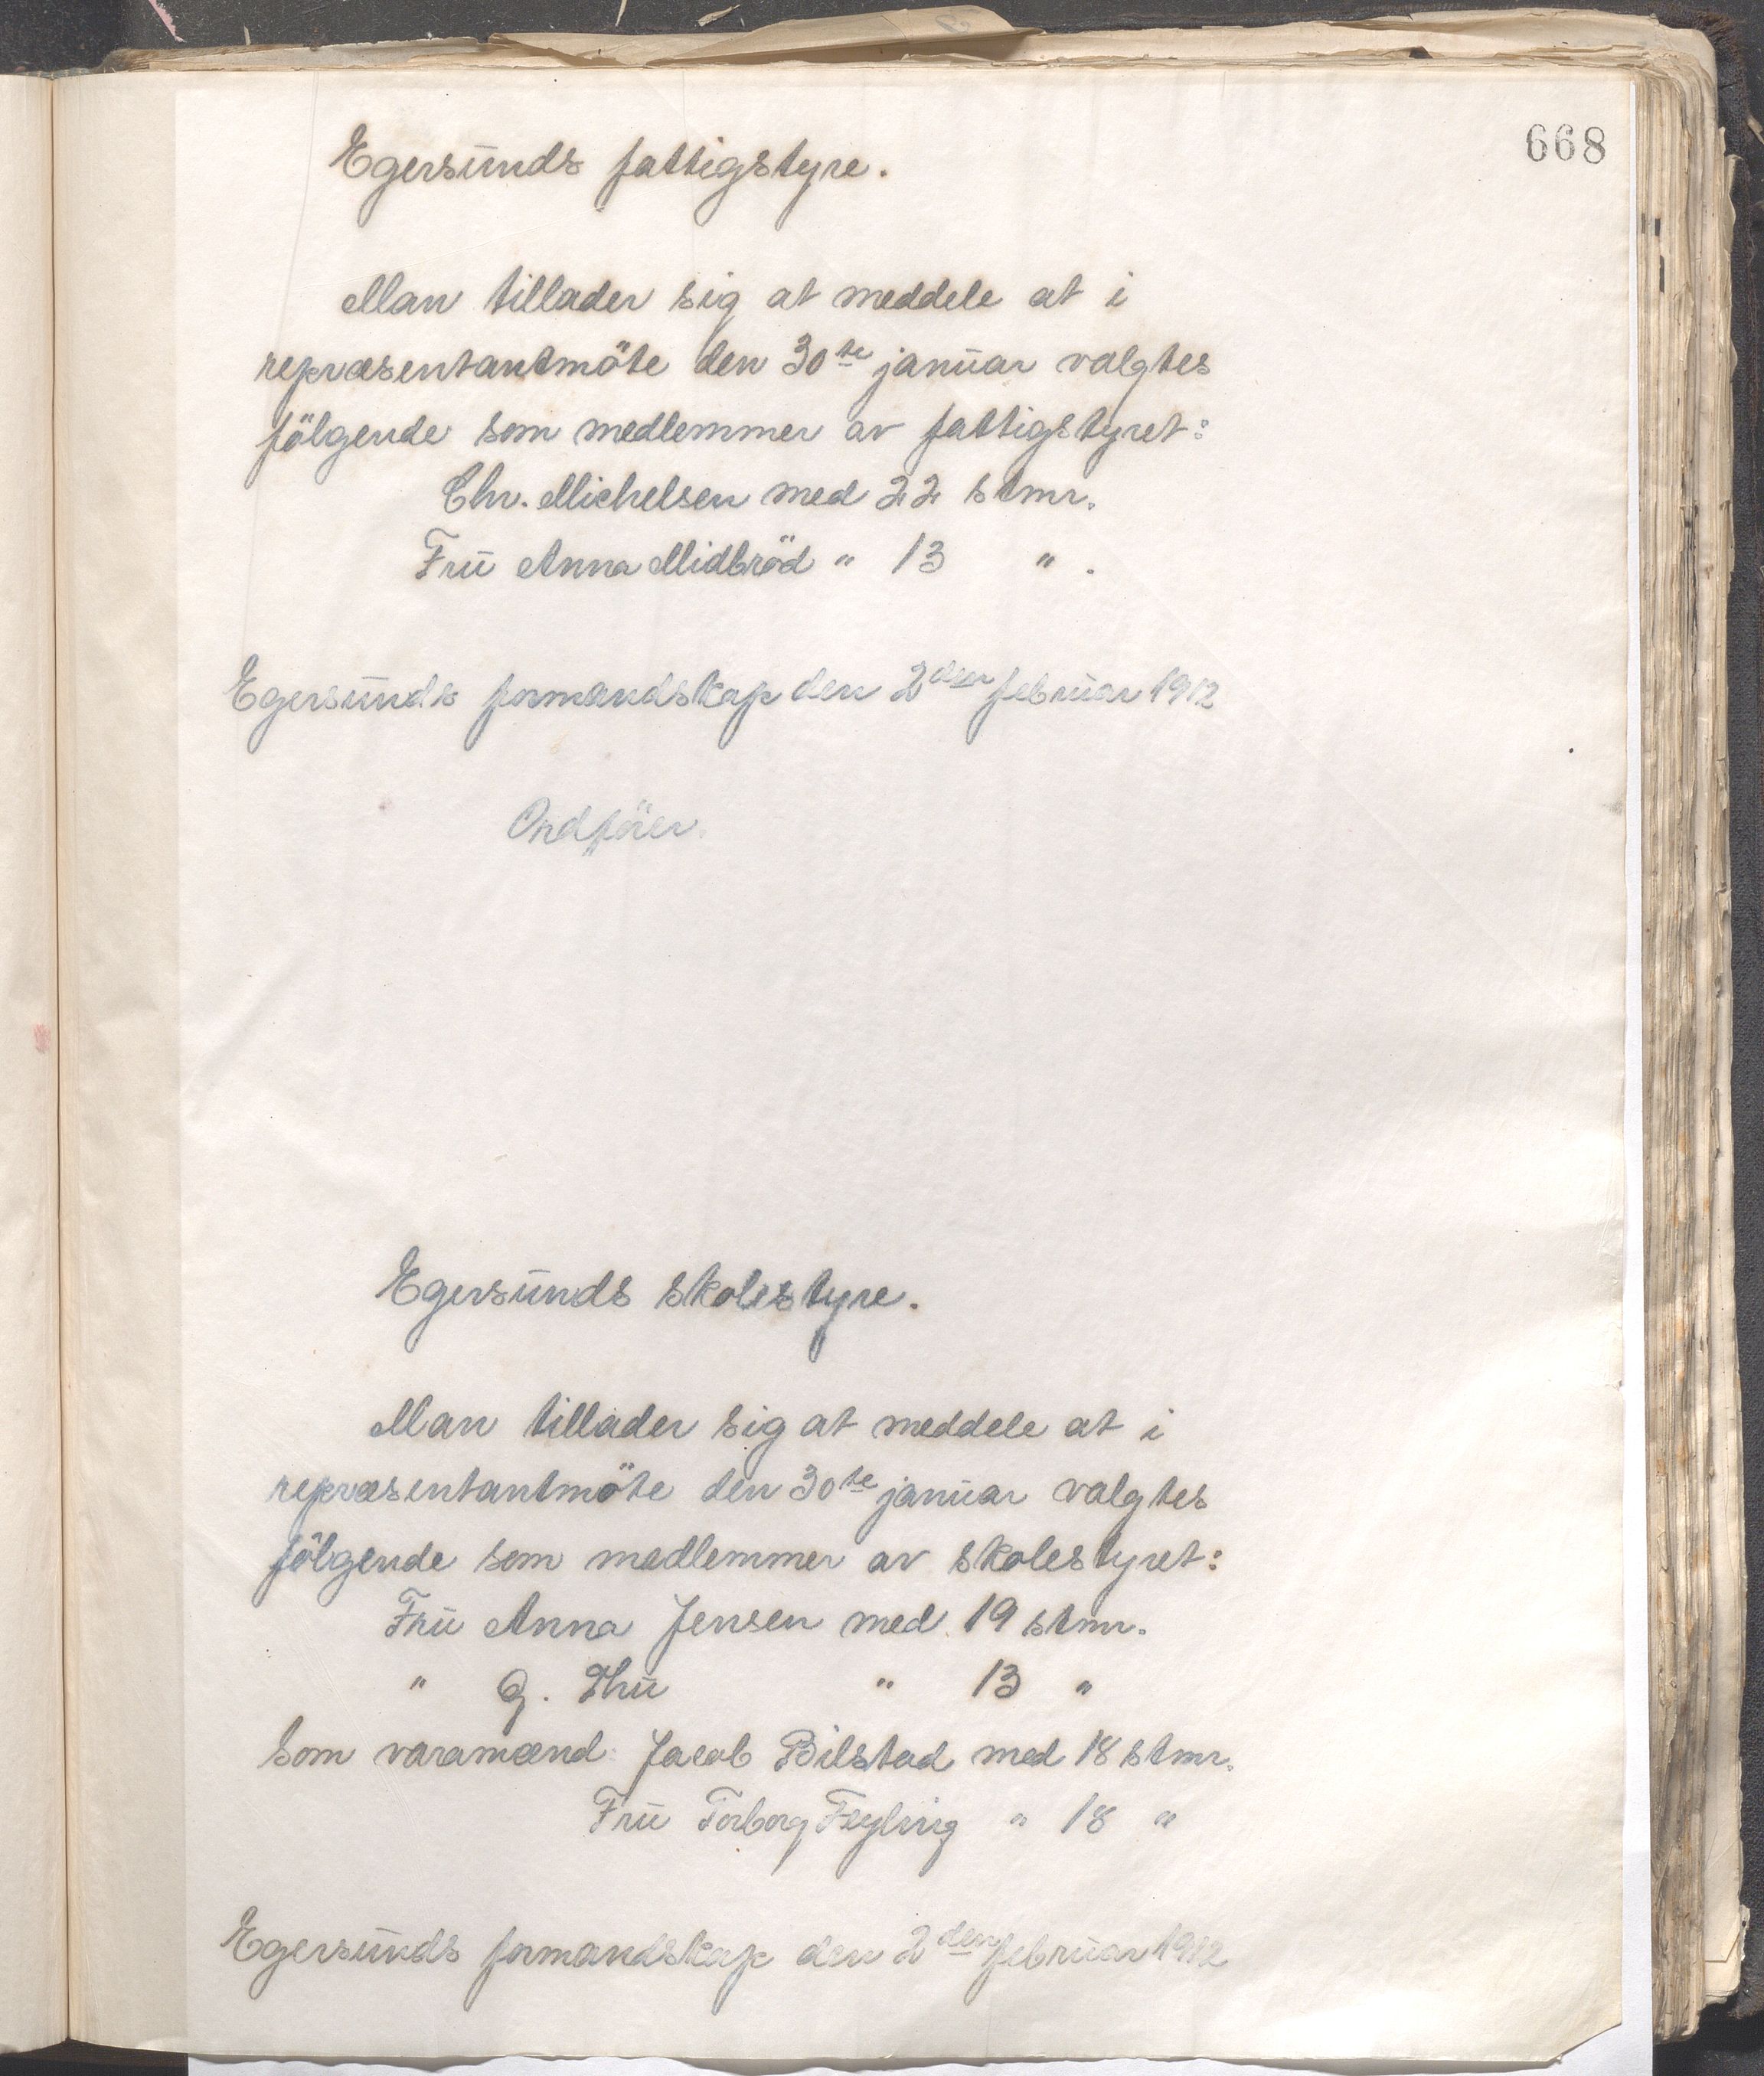 668
Egersunds fattigstyre.
Man tillader sig at meddele at i
repræsentantmöte den 30te januar valgtes
fölgende som medlemmer av fattigstyret:
Chr. Michelsen med 22 stmr.
Fru Anna Midbröd " 13 " .
Egersunds formandskap den 2den februar 1912
Ordförer.
Egersunds skolestyre.
Man tillader sig at meddele at i
repræsentantmöte den 30te januar valgtes
fölgende som medlemmer av skolestyret:
Fru Anna Jensen med 19 stmr.
" G. Thu " 13 "
Som varamænd: Jacob Bilstad med 18 stmr.
Fru Torborg Feyling " 18 "
Egersunds formandskap den 2den februar 1912